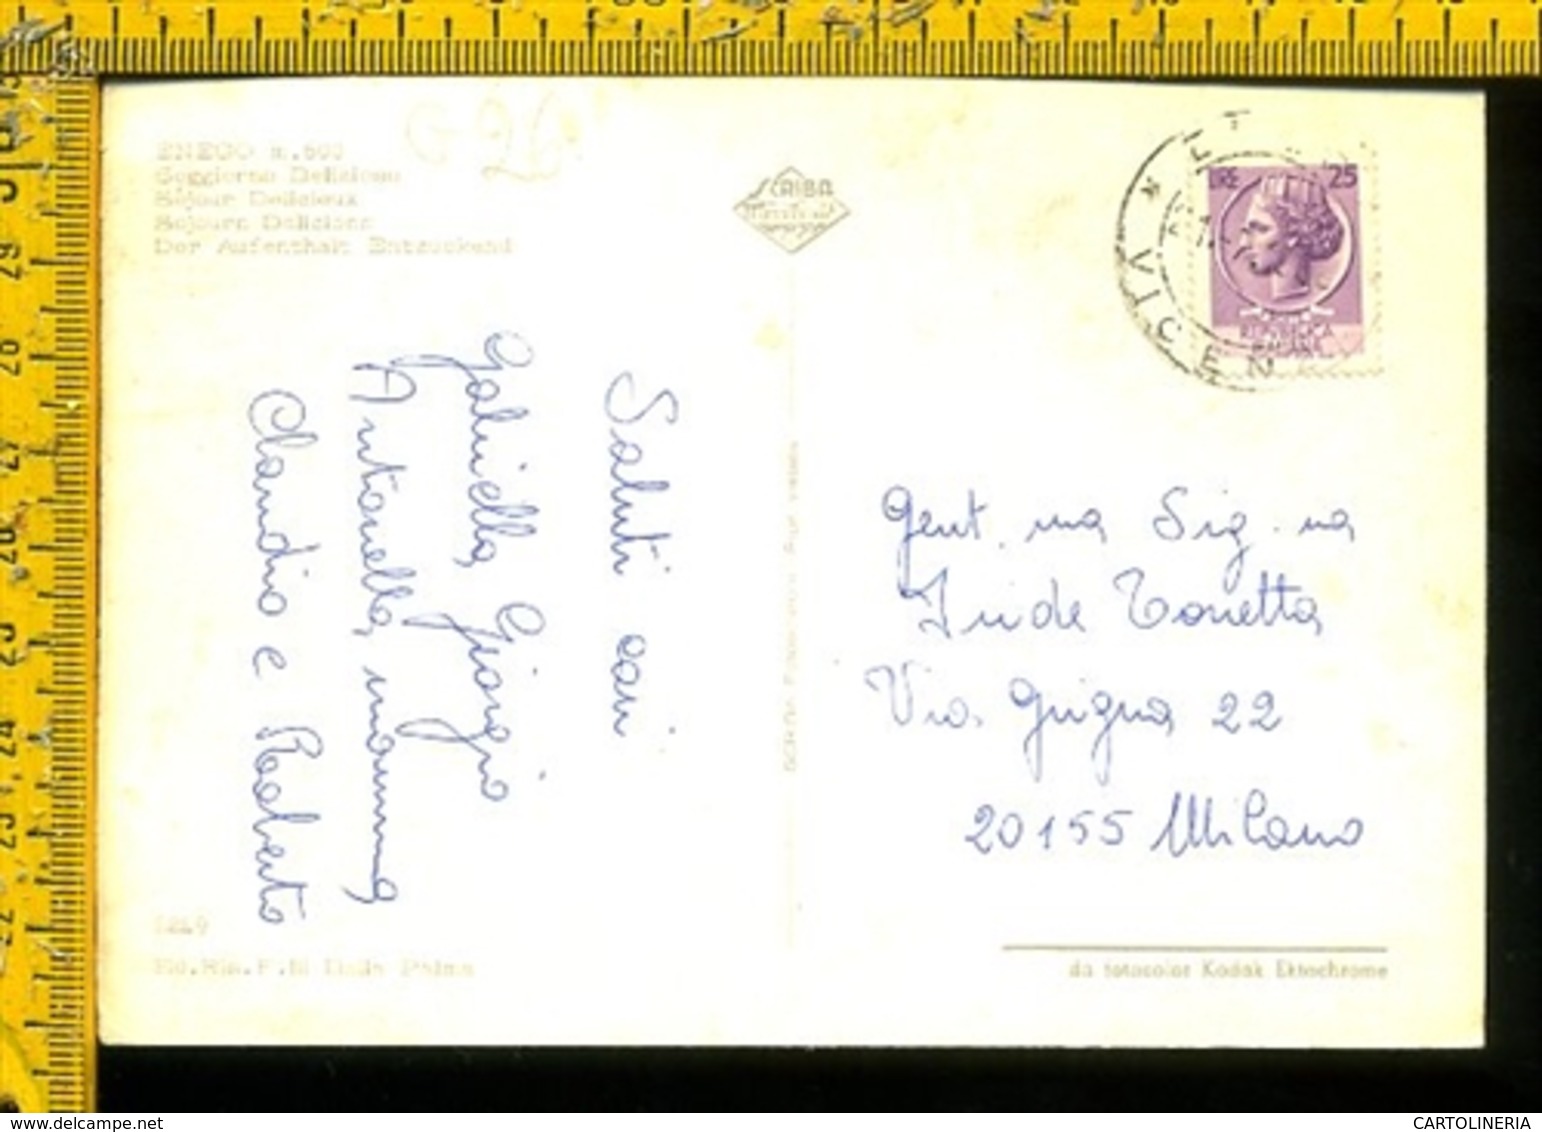 ENEGO m. 800
Soggiorno Delizioso
Séjour Delicieux
Sejourn Delicious
Der Aufenthalt Entzuckend
SCRIBA
LIRE 25
REPVBBLICA
ITALIANA
VICEN
Saluti cari
Gabriella, Giorgio
Antonella, mamma
Claudio e Roberto
Gent.ma Sig.na
Tonetta
Via Grigna 22
20155 Milano
Ed. Ris. F.lli Dalla Palma
da fotocolor Kodak Ektachrome
www.delcampe.net
CARTOLINERIA